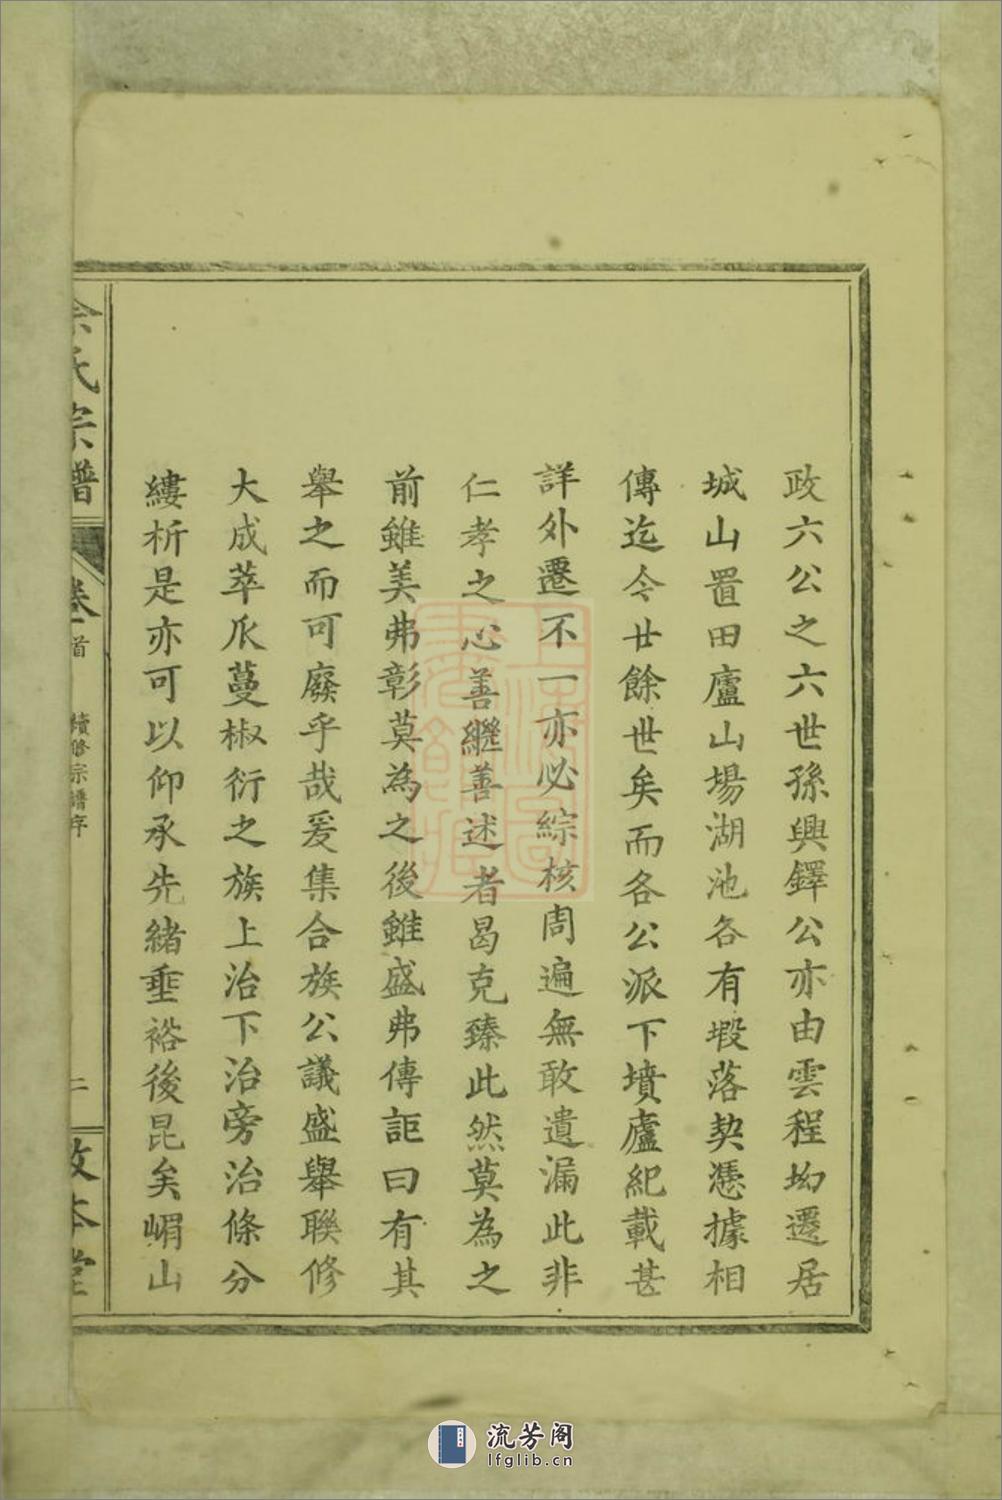 政六公之六世孫興鐸公亦由雲程坳遷居
城山置田廬山場湖池各有塅落契憑據相
傳迄今廿餘世矣而各公派下墳廬紀載甚
詳外遷不一亦必綜核周遍無敢遺漏此非
仁孝之心善繼善述者曷克臻此然莫為之
前雖美弗彰莫為之後雖盛弗傳詎曰有其
舉之而可廢乎哉爰集合族公議盛舉聯修
大成萃瓜蔓椒衍之族上治下治旁治條分
縷析是亦可以仰承先緒垂裕後昆矣嵋山
余氏宗譜
卷首
續修宗譜序
二
敦本堂
上海圖書館藏
流芳阁
lfglib.cn